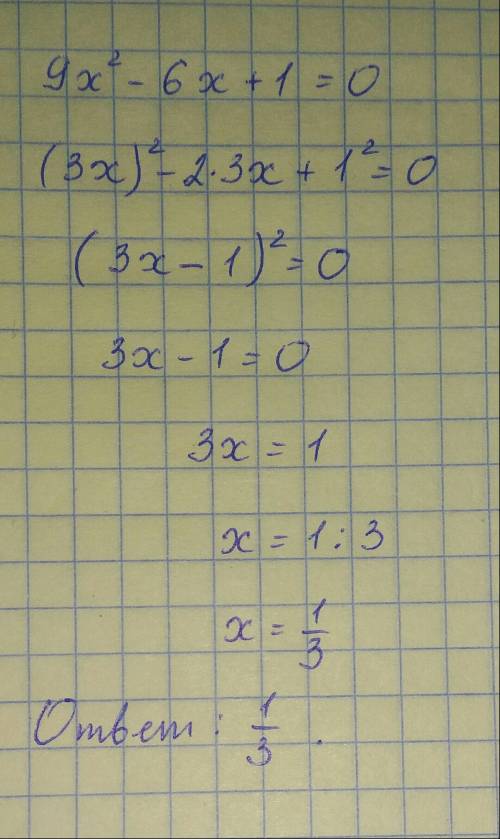 9x² - 6x + 1 = 0
(3x)² - 2·3x + 1² = 0
(3x - 1)² = 0
3x - 1 = 0
3x = 1
x = 1 : 3
x = 1/3
Ответ: 1/3.